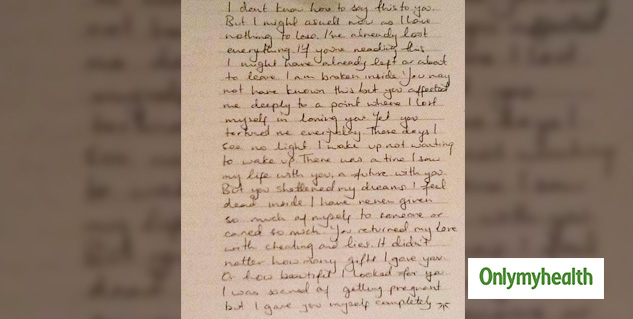 I dont know how to say this to you.
But I might aswell now as I have
nothing to lose. I've already lost
everything. If you're reading this
I might have already left or about
to leave. I am broken inside. You may
not have known this but you affected
me deeply to a point where I lost
myself in loving you. Yet you
tortured me everyday. These days I
see no light I wake up not wanting
to wake up. There was a time I saw
my life with you, a future with you.
But you shattened my dreams. I feel
dead inside. I have never given
so much of myself to someone or
cared so much. You returned my love
with cheating and lies. It didn't
matter how many gifts I gave you
Or how beautiful I looked for you
I was scared of getting pregnant
but I gave you myself completely
Onlymyhealth